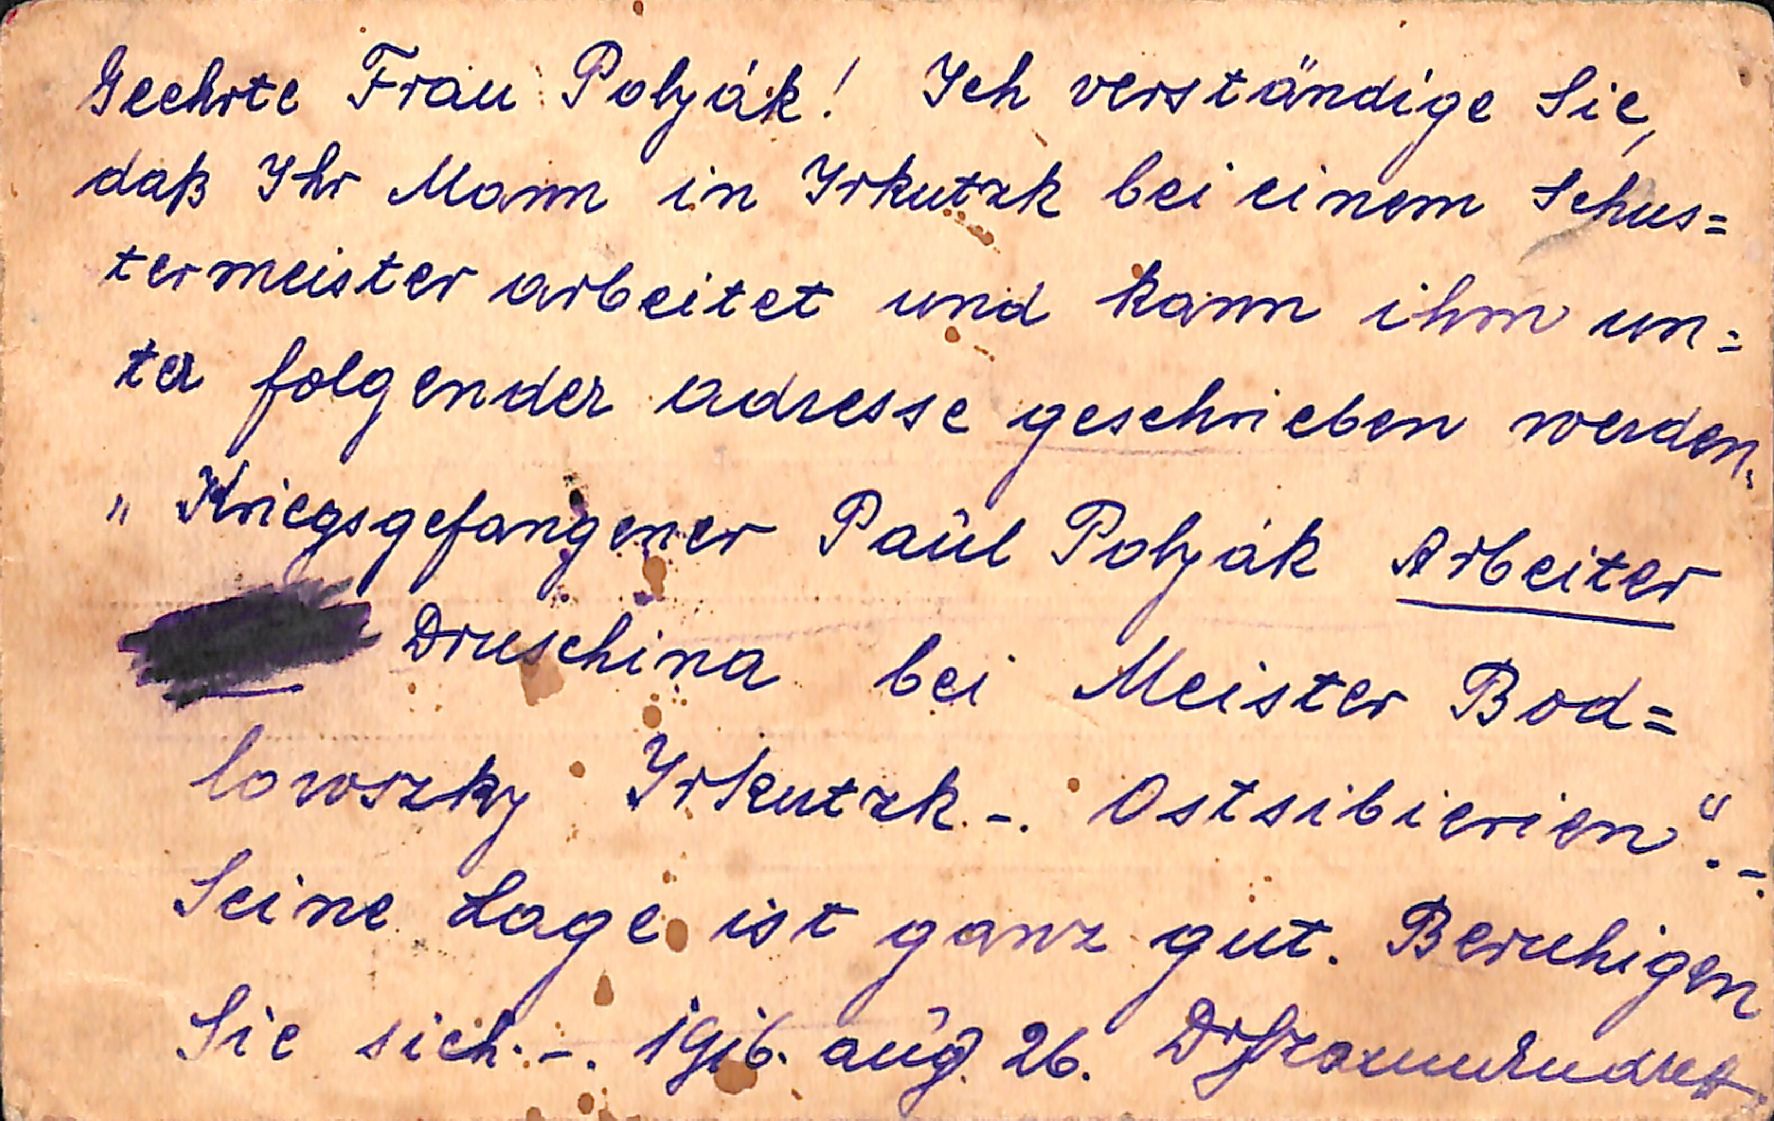 Geehrte Frau Polyák! Ich verständige Sie,
daß Ihr Mann in Irkutzk bei einem Schus=
termeister arbeitet und kann ihm un=
ter folgender adresse geschrieben werden.
„ Kriegsgefangener Paul Polyák Arbeiter
Druschina bei Meister Bod=
lowszky Irkutzk -. Ostsibierien“.-.
Seine Lage ist ganz gut. Beruhigen
Sie sich.-. 1916. aug. 26. Dr